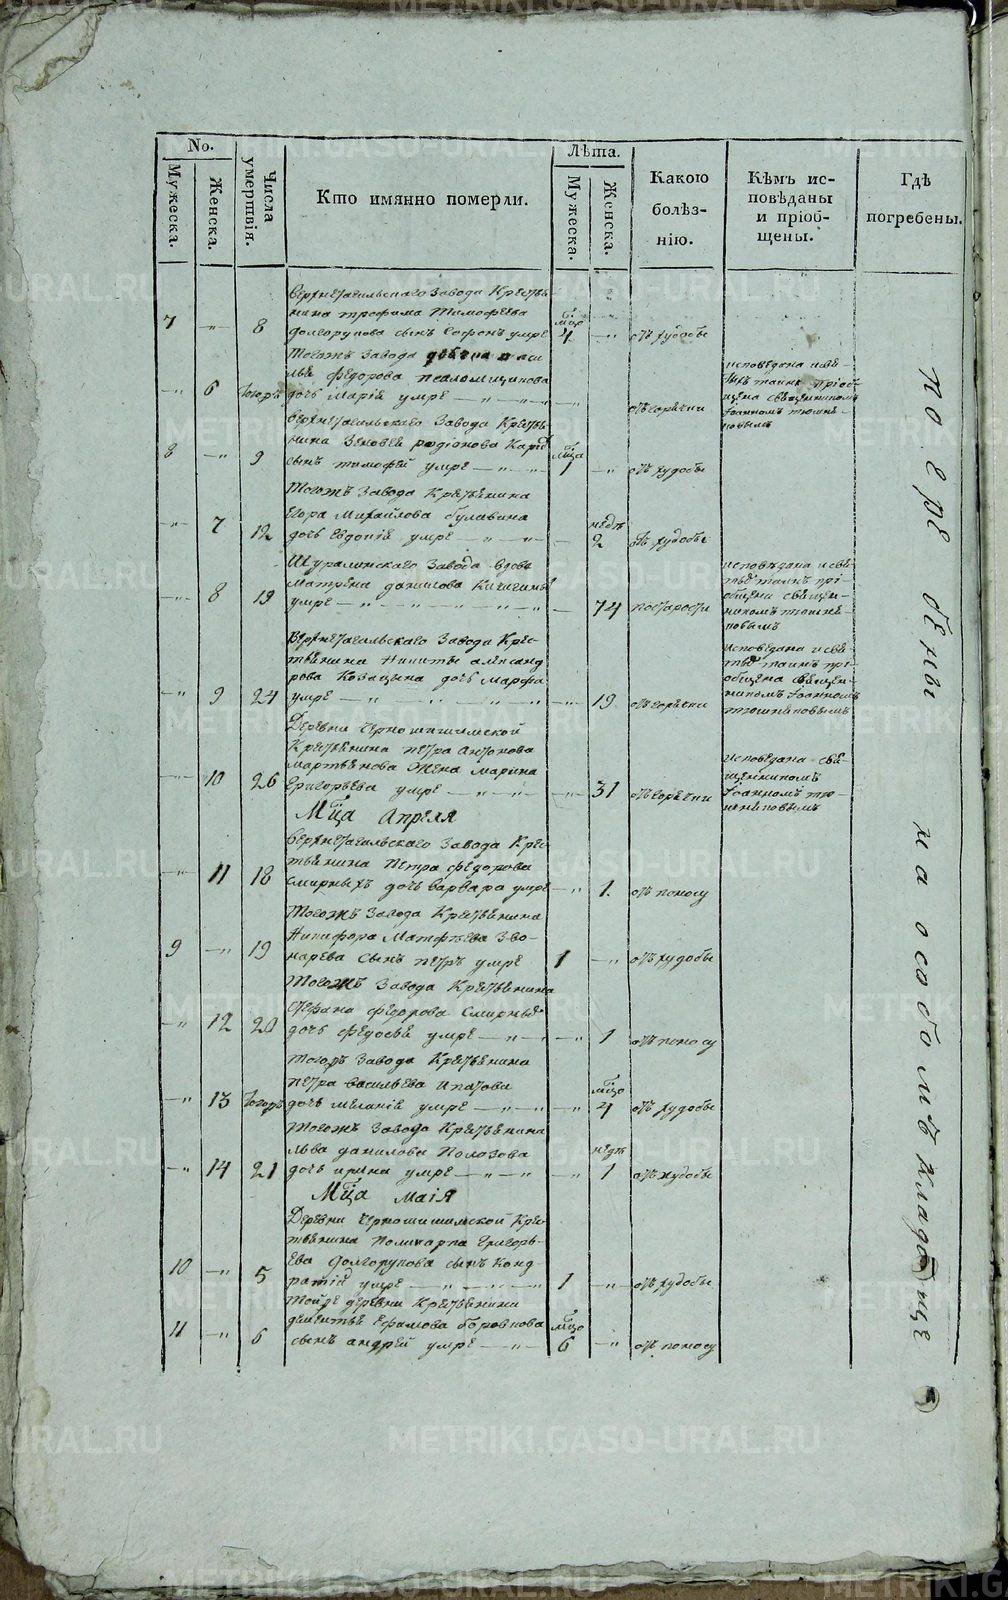 No.
Мужеска.
Женска.
Числа умертвія.
Кто имянно померли.
Лѣта.
Мужеска.
Женска.
Какою болѣз-
нію.
Кѣмъ ис-
повѣданы
и пріоб-
щены.
Гдѣ
погребены.
Верхнетагильскаго Завода Кресть
янина трофима Тимофеева
7 8 долгорукова сынъ Софонъ умре мцо 4 отъ худобы
Тогожъ Завода
лья Федорова
6 тогожъ дочь Марія умре отъ горячки
исповѣдана и свя-
тыхъ таинъ пріоб-
щена священникомъ
Іоанномъ тюшня-
ковымъ
Верхнетагильскаго Завода Кресть
янина Зиновья родіонова
8 9 сынъ тимофей умре мцa 1 отъ худобы
Тогожъ Завода Крестьянина
Егора Михайлова булавина
7 12 дочь Евдокія умре недѣ 2 отъ худобы
Шуралинскаго Завода вдова
Матрена данилова
8 19 умре 74 отъ старости
исповѣдана и свя-
тыхъ таинъ прі-
общена священ-
никомъ тюшня-
ковымъ
Верхнетагильскаго Завода Крес-
тьянина Никиты александ
рова Казацына дочь марфа
9 24 умре 19 отъ горячки
исповѣдана и свя-
тыхъ таинъ прі-
общена священ-
никомъ Іоанномъ
тюшняковымъ
Деревни Черношишимской
Крестьянина петра антонова
мартьянова жена марина
10 26 Григорьева умре 31 отъ горячки
исповѣдана свя-
щенникомъ
Іоанномъ тю-
шняковымъ
Мца Апреля
Верхнетагильскаго Завода Крес-
тьянина Петра федорова
11 18 Смирныхъ дочь варвара умре 1. отъ поносу
Тогожъ Завода Крестьянина
Никифора Матфеева Зво-
9 19 нарева Сынъ петръ умре 1 отъ худобы
Тогожъ Завода Крестьянина
Стефана федорова Смирныхъ
12 20 дочь федосья умре 1 отъ поносу
Тогожъ Завода Крестьянина
петра васильева ипатова
13 тогожъ дочь меланія умре мцо 4 отъ худобы
Тогожъ Завода Крестьянина
льва данилова Полозова
14 21 дочь ирина умре недѣ 1 отъ худобы
Мца маія
Деревни Черношишимской Крес-
тьянина Поликарпа Григорь-
ева Долгорукова сынъ Конд-
10 5 ратій умре 1 отъ худобы
Тойже деревни Крестьянина
дементья Ефимова боровкова
11 6 сынъ андрей умре мцo 6 отъ поносу
на особомъ кладбище
METRIKI.GASO-URAL.RU